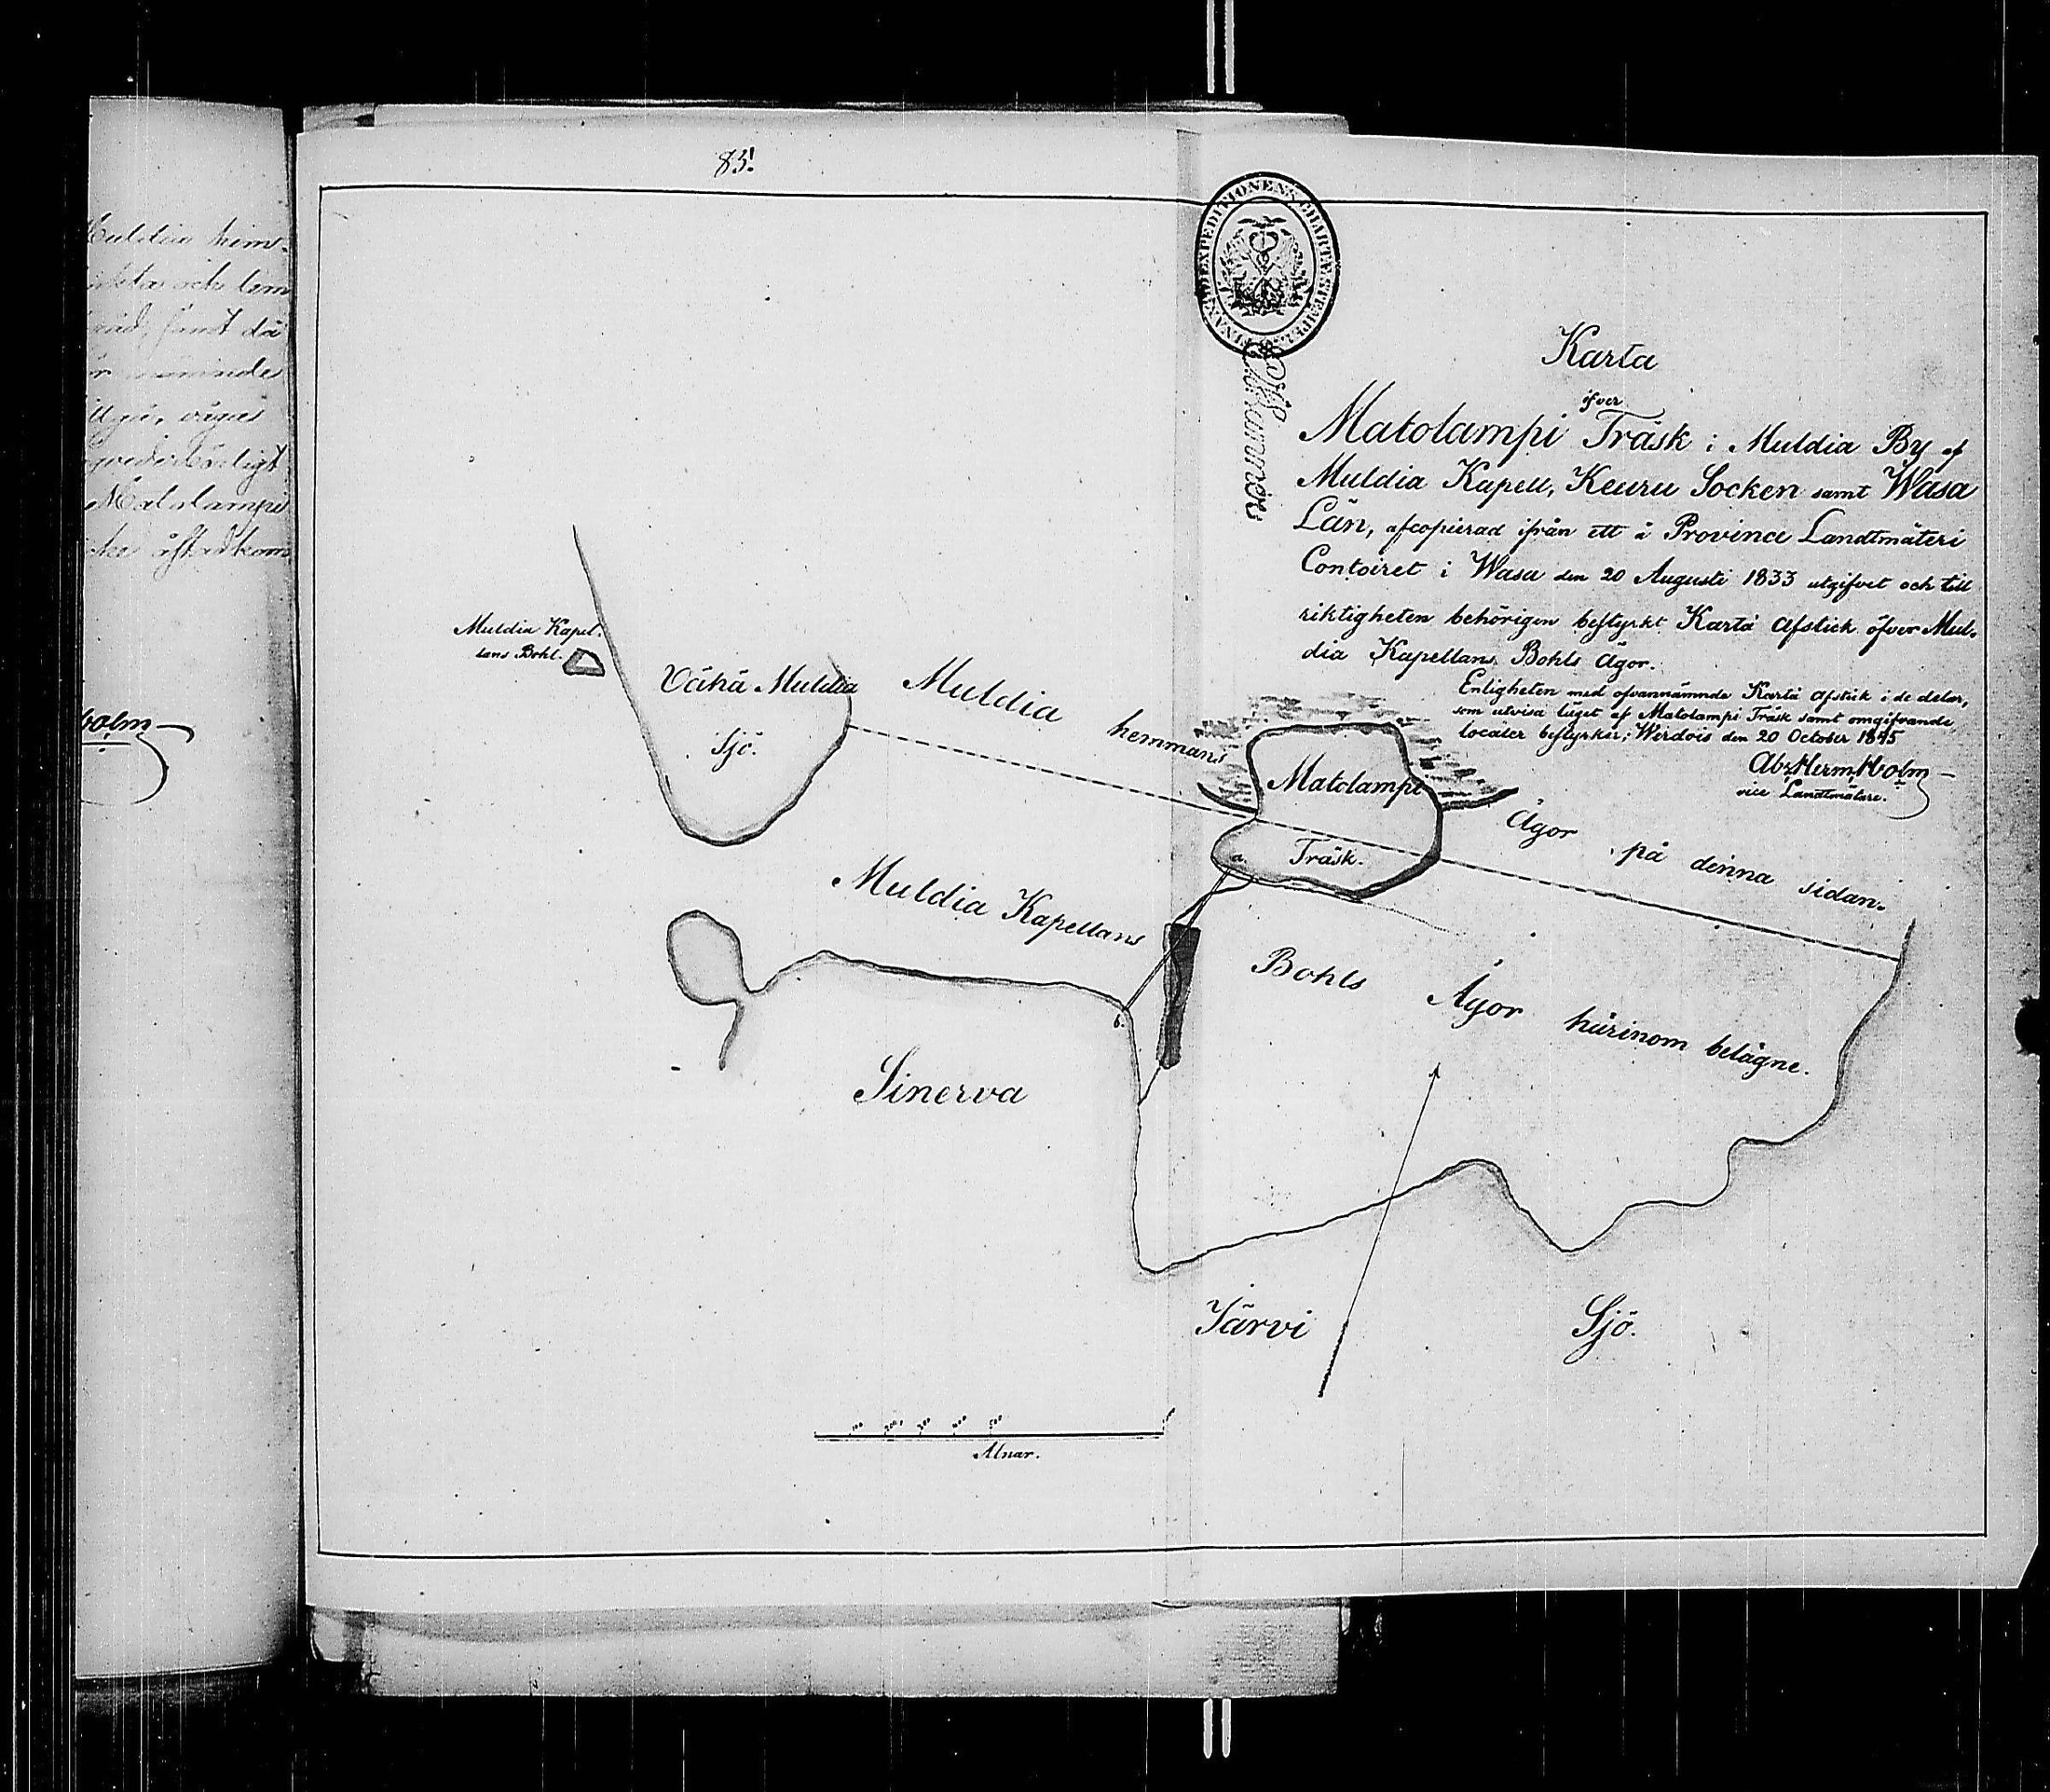 85.
FINANCE EXPEDITIONENS CHARTÆ STEMPEL
Karta
öfver
Matolampi Träsk i Muldia By af
Muldia Kapell, Keuru Socken samt Wasa
Län, afcopierad ifrån ett å Province Landtmäteri
Contoiret i Wasa den 20 Augusti 1833 utgifvet och till
riktigheten behörigen bestyrkt Karta Afstick öfver Mul-
dia Kapellans Bohls Ägor.
Enligheten med ofvannämnde Karta Afstick i de delar,
som utvisa läget af Matolampi Träsk samt omgifvande
localer bestyrker; Werdois den 20 October 1845
Ab: Herm: Holm
vice Landtmätare.
Muldia Kapel-
lans Bohl.
Vähä Muldia
Sjö.
Muldia hemmans Ägor på denna sidan.
Matolampi
Träsk.
a.
Muldia Kapellans Bohls Ägor härinom belägne.
b.
Sinerva
Järvi Sjö.
100 200 300 400 500
Alnar.
Muldia hem-
och
samt då
Matolampi
holm